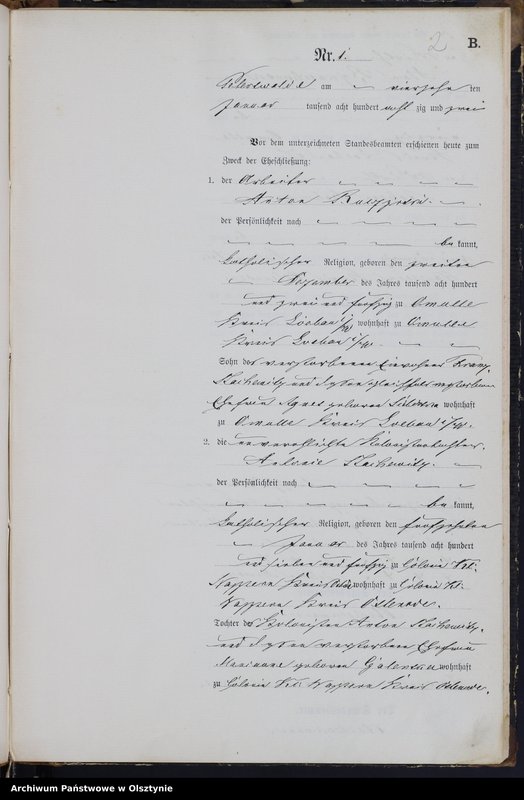 2
B.
Nr. 1.
am vierzehn ten
Januar tausend acht hundert acht zig und zwei
Vor dem unterzeichneten Standesbeamten erschienen heute zum
Zweck der Eheschließung:
1. der Arbeiter
Anton
der Persönlichkeit nach
be kannt,
katholischer Religion, geboren den zweiten
des Jahres tausend acht hundert
und zwei und fünfzig zu Omulle
Kreis Loebau i/W wohnhaft zu Omulle
Kreis Loebau i/W.
Sohn des verstorbenen Einwohners Franz
und dessen gleichfalls verstorbenen
Ehefrau Agnes geborenen wohnhaft
zu Omulle Kreis Loebau i/W.
2. die unverehelichte
Antonie
der Persönlichkeit nach
be kannt,
katholischer Religion, geboren den fünfzehnten
Januar des Jahres tausend acht hundert
und sieben und fünfzig zu Colonie Kl.
Nappern Kreis wohnhaft zu Colonie Kl.
Nappern Kreis Osterode.
Tochter des Kolonisten Anton
und dessen verstorbenen Ehefrau
Marianne geborenen wohnhaft
zu Colonie Kl. Nappern Kreis Osterode.
Archiwum Państwowe w Olsztynie